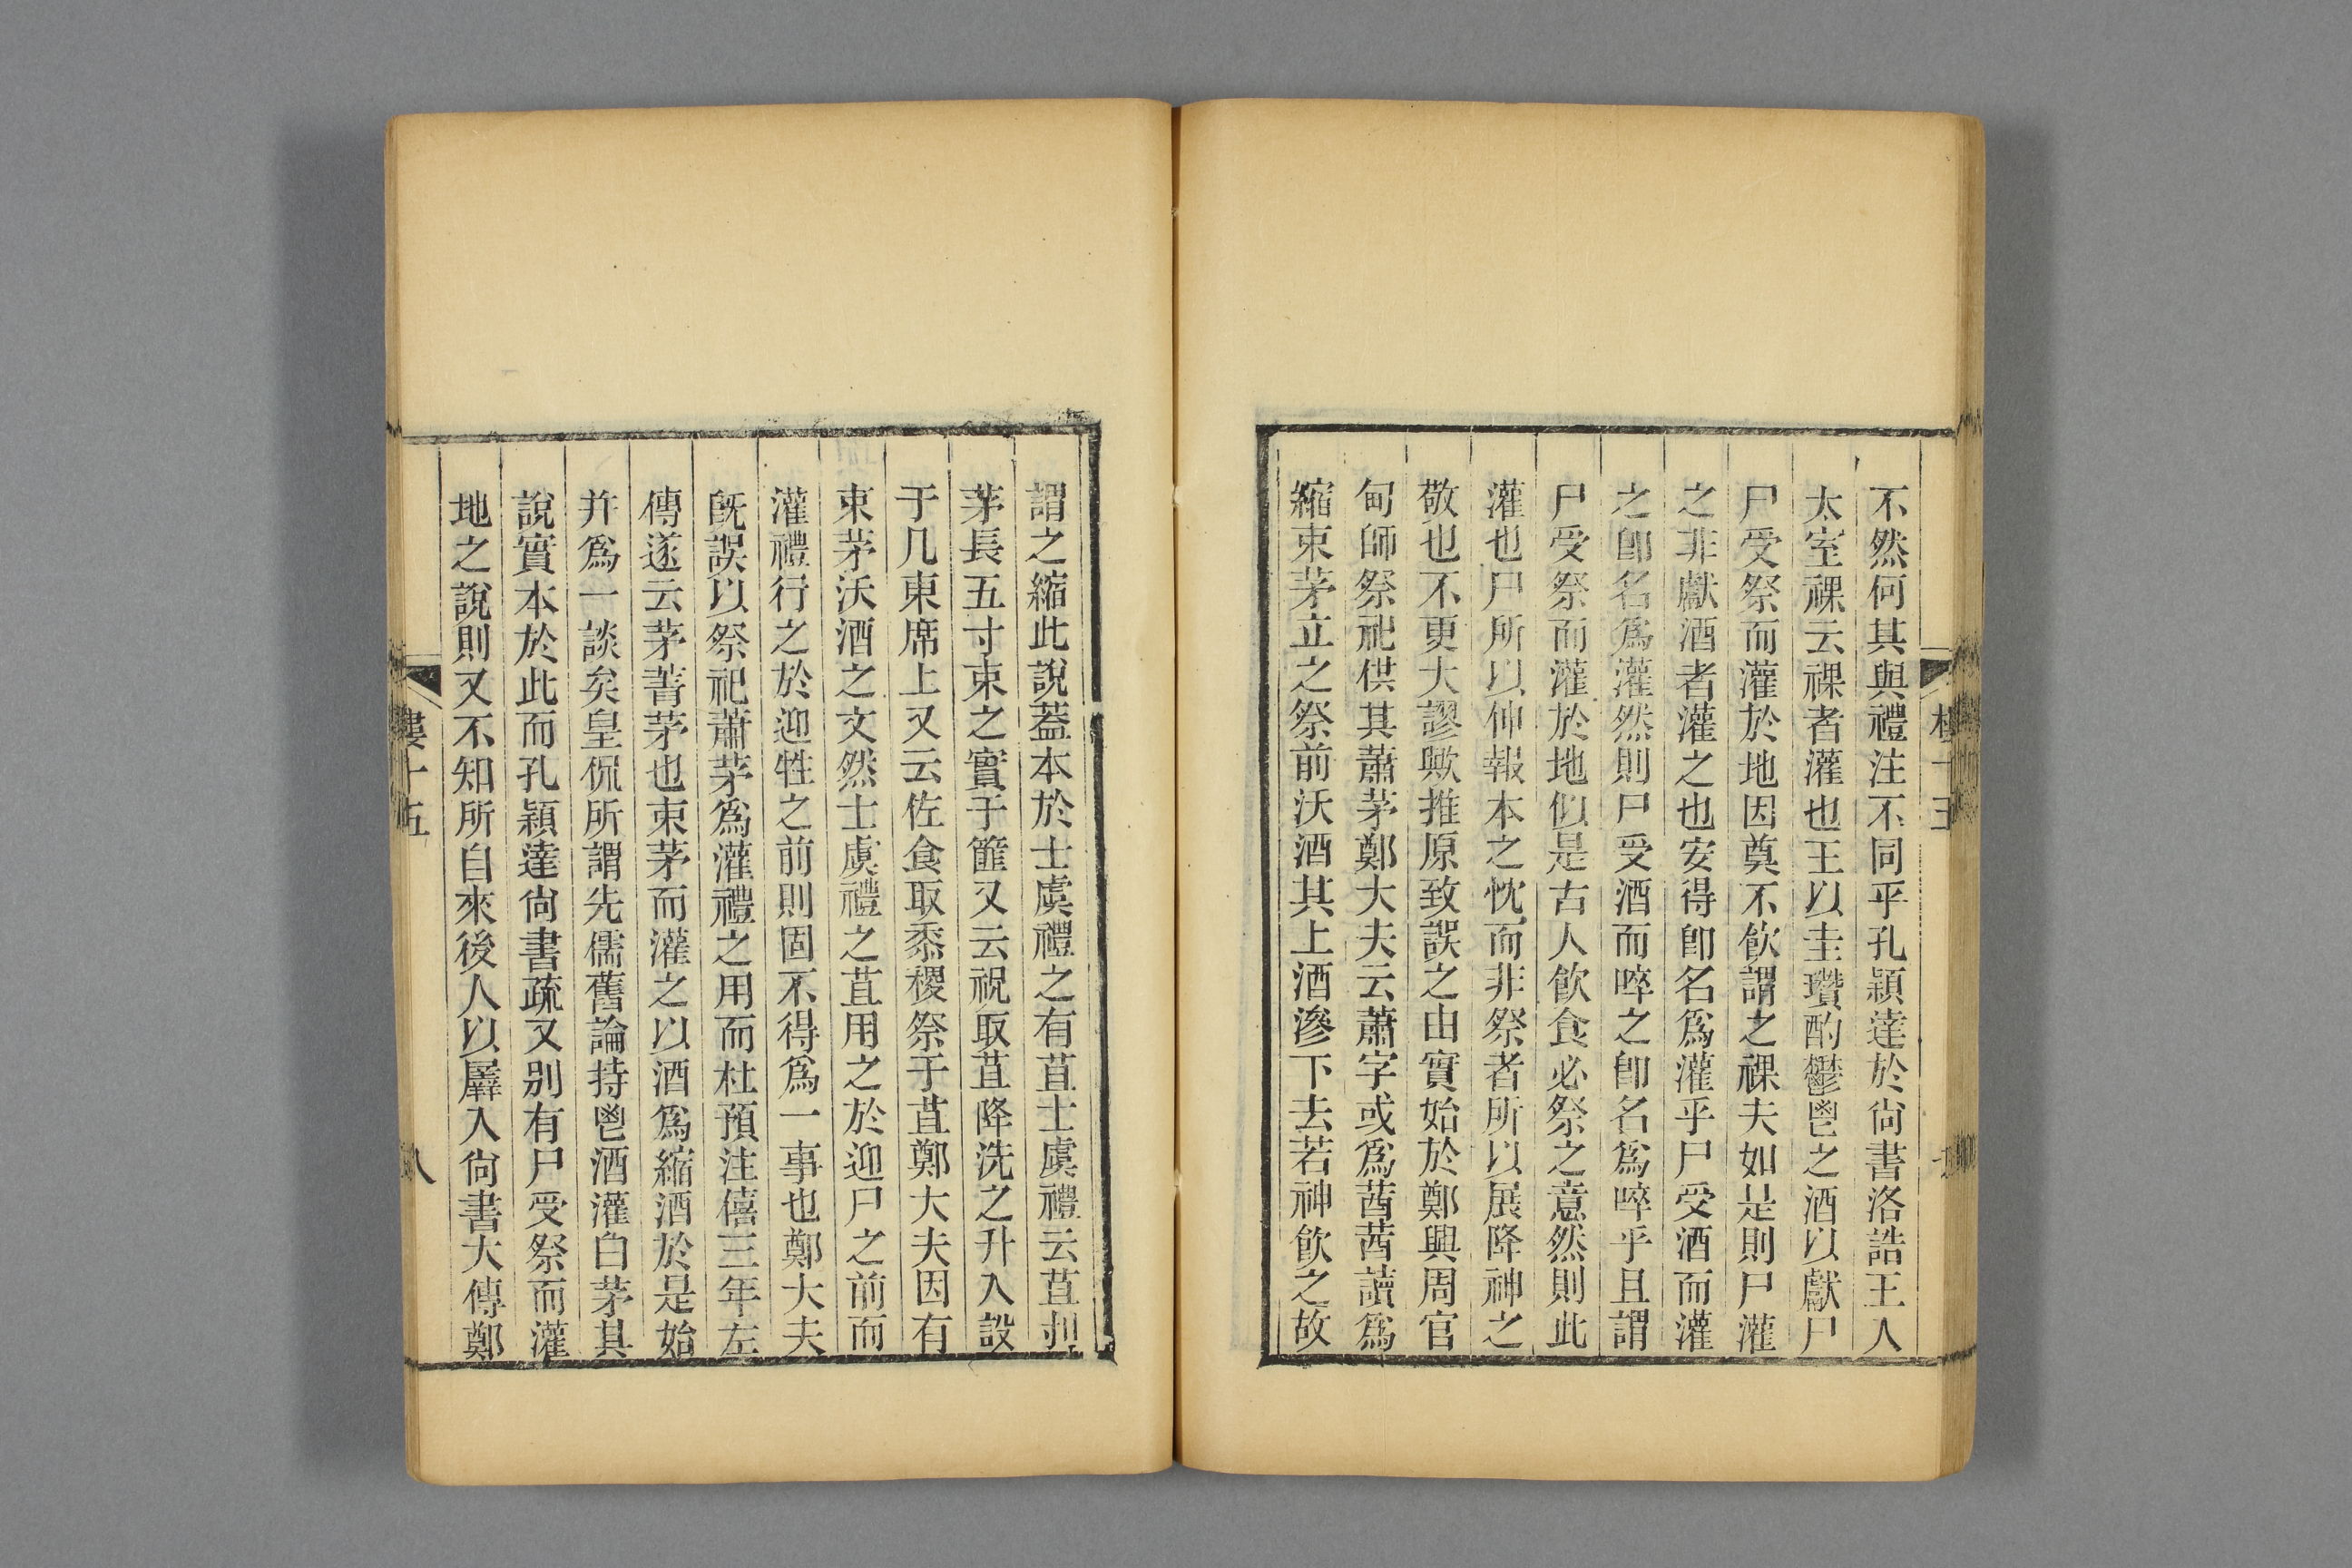 不然何其與禮注不同乎孔穎達於尙書洛誥王人
太室祼云祼者灌也王以圭瓚酌鬱鬯之酒以獻尸
尸受祭而灌於地因奠不飮謂之祼夫如是則尸灌
之非獻酒者灌之也安得卽名爲灌乎尸受酒而灌
之卽名爲灌然則尸受酒而啐之卽名爲啐乎且謂
尸受祭而灌於地似是古人飮食必祭之意然則此
灌也尸所以仰報本之忱而非祭者所以展降神之
敬也不更大謬歟推原致誤之由實始於鄭興周官
甸師祭祀供其蕭茅鄭大夫云蕭字或爲莤莤讀爲
縮束茅立之祭前沃酒其上酒滲下去若神飮之故
謂之縮此說蓋本於士虞禮之有苴士虞禮云苴刌
茅長五寸束之實于篚又云祝取苴降洗之升入設
于几東席上又云佐食取黍稷祭于苴鄭大夫因有
束茅沃酒之文然士虞禮之苴用之於迎尸之前而
灌禮行之於迎牲之前則固不得爲一事也鄭大夫
旣誤以祭祀蕭茅爲灌禮之用而杜預注僖三年左
傳遂云茅菁茅也束茅而灌之以酒爲縮酒於是始
幷爲一談矣皇侃所謂先儒舊論持鬯酒灌白茅其
說實本於此而孔穎達尙書疏又別有尸受祭而灌
地之說則又不知所自來後人以羼入尙書大傳鄭
十五
八